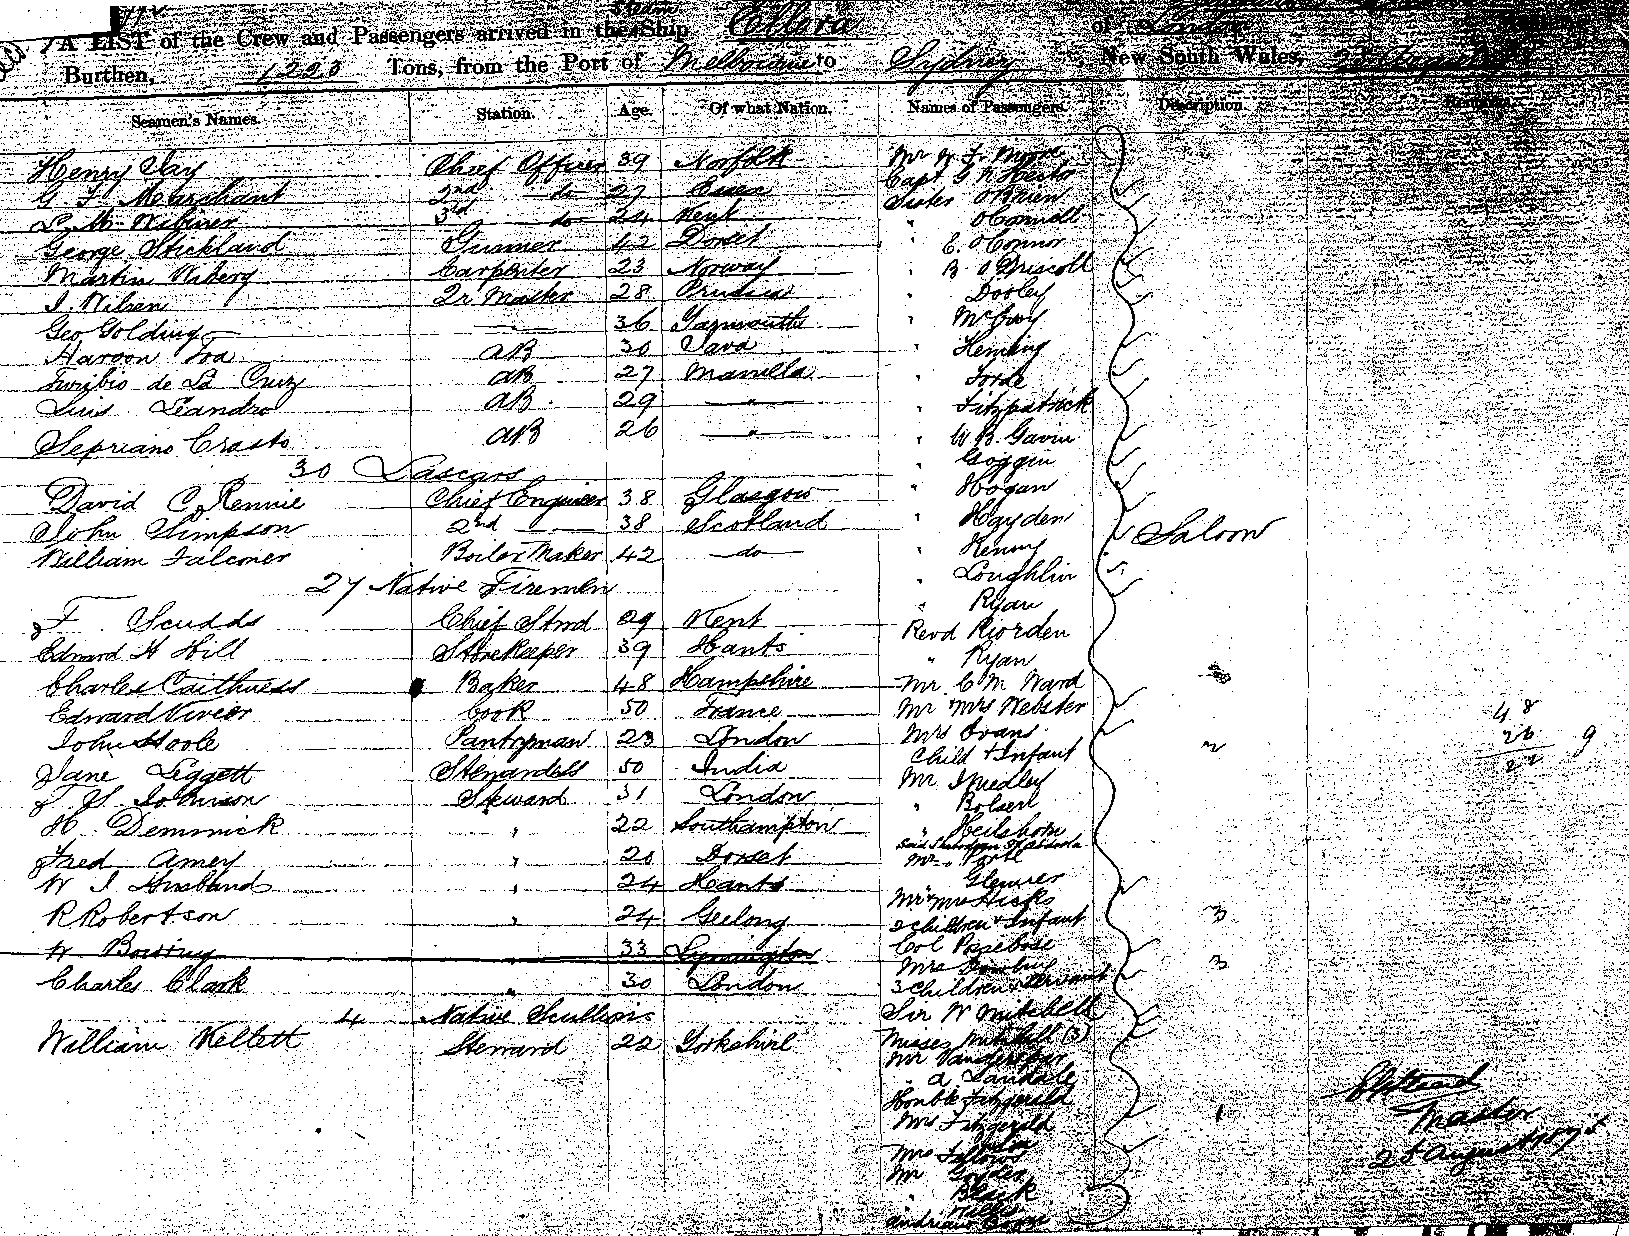 A LIST of the Crew and Passengers arrived in the Steam Ship Ellora of London
Burthen, 1220 Tons, from the Port of Melbourne to Sydney, New South Wales,
Seamen's Names. Station. Age. Of what Nation. Names of Passengers. Description. Remarks.
Henry Tay Chief Officer 39 Norfolk
G F Marchant 2nd do 27 Essex
3rd do 24 Kent
George Strickland Gunner 42 Dorset
Martin Wiberg Carpenter 23 Norway
J. Nilsen Qr Master 28 Prussia
Geo Golding 36 Yarmouth
Haroon AB 30 Java
Turibio de La Cruz AB 27 Manilla
Luis Leandro AB 29 "
Sepriano Crasto AB 26 "
30 Lascars
David C Rennie Chief Engineer 38 Glasgow
John Simpson 2nd 38 Scotland
William Falconer Boiler Maker 42 do
27 Native Firemen
F. Scudds Chief Stwd 29 Kent
Edward H Hill Storekeeper 39 Hants
Charles Caithness Baker 48 Hampshire
Edward Viveer Cook 50 France
John Hoole Pantryman 23 London
Jane Leggett Stewardess 50 India
Johnson Steward 31 London
H. Demmick " 22 Southampton
Fred Amey " 20 Dorset
W J Husband " 24 Hants
R Robertson " 24 Geelong
W Bowring 33 Lymington
Charles Clark " 30 London
4 Native Scullions
William Kellett Steward 22 Yorkshire
Capt G N Hector
Sister O'Brien
" O'Connell
" C. O'Connor
" B O'Driscoll
" Dooley
" McEvoy
" Fleming
" Forde
" Fitzpatrick
" W B. Gavin
" Goggin
" Hogan
" Hayden
" Kenny
" Loughlin
" Ryan
Revd Riorden
" Ryan
Mr C M Ward
Mr Mrs Webster
Mrs Evans
Child & Infant
Mr Smedley
" Heilshorn
Mr Mrs Hicks
2 children & Infant
Col Rosebose
Mrs
3 Children & Servant
Sir W Mitchell
Misses Mitchell (3)
Mr
Honble Fitzgerald
Mrs Fitzgerald
Mrs Fellows
Mr
" Black
" Wills
Saloon
2
3
3
1
48
26
22
9
Master
25 August 187